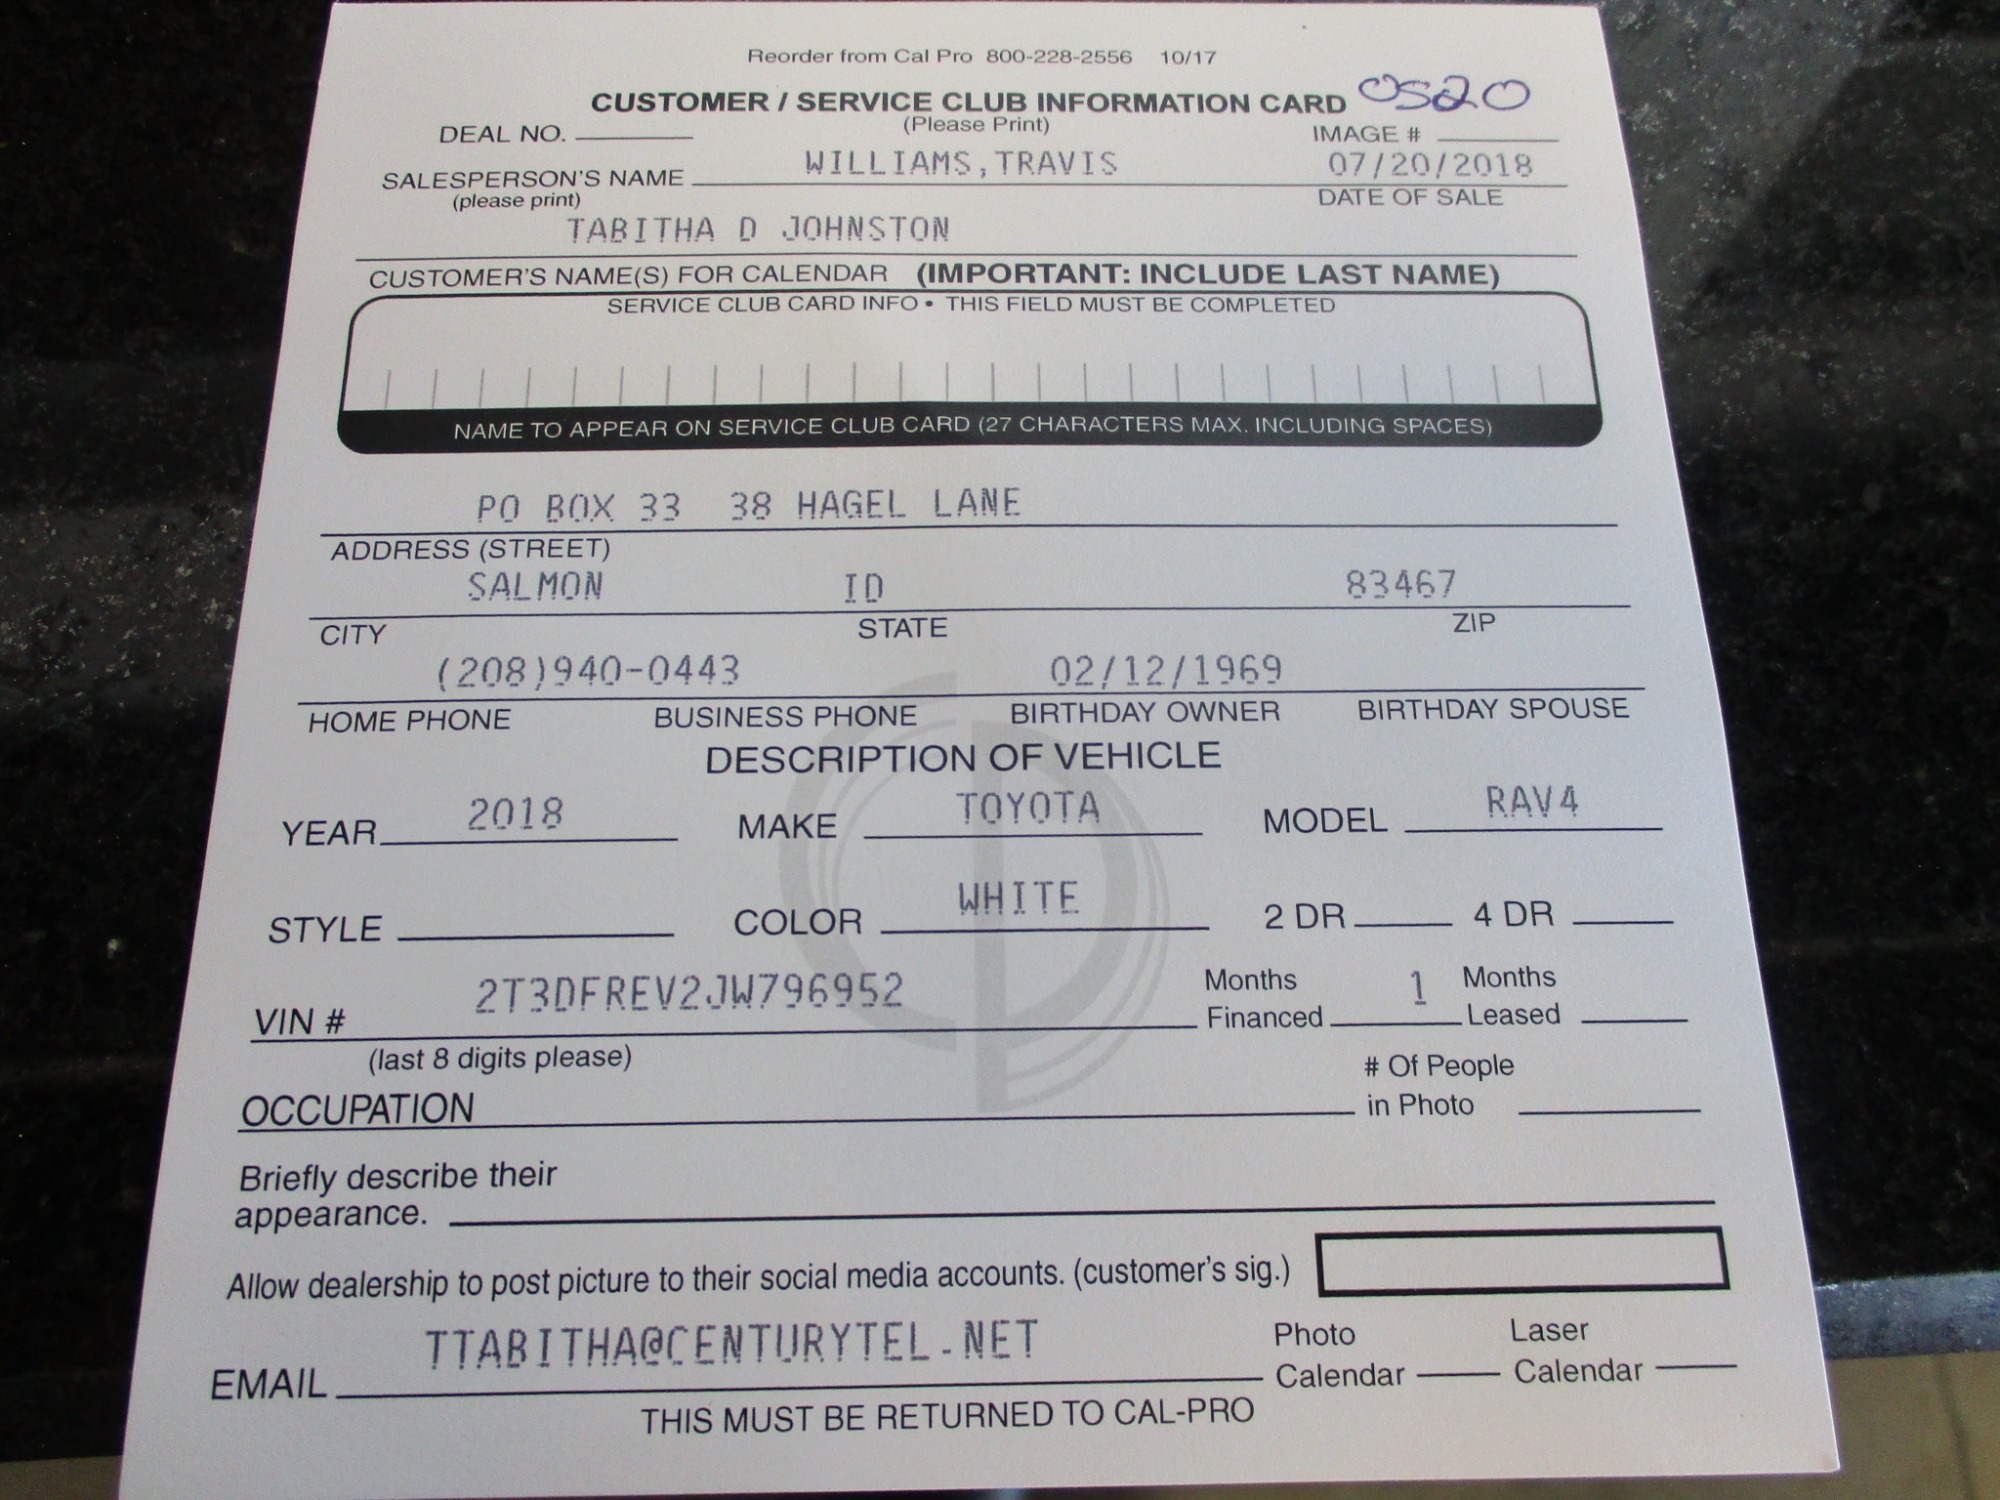 Reorder from Cal Pro 800-228-2556 10/17
CUSTOMER / SERVICE CLUB INFORMATION CARD 0520
(Please Print)
DEAL NO. IMAGE #
WILLIAMS,TRAVIS 07/20/2018
SALESPERSON'S NAME DATE OF SALE
(please print)
TABITHA D JOHNSTON
CUSTOMER'S NAME(S) FOR CALENDAR (IMPORTANT: INCLUDE LAST NAME)
SERVICE CLUB CARD INFO • THIS FIELD MUST BE COMPLETED
NAME TO APPEAR ON SERVICE CLUB CARD (27 CHARACTERS MAX. INCLUDING SPACES)
PO BOX 33 38 HAGEL LANE
ADDRESS (STREET)
SALMON ID 83467
CITY STATE ZIP
(208)940-0443 02/12/1969
HOME PHONE BUSINESS PHONE BIRTHDAY OWNER BIRTHDAY SPOUSE
DESCRIPTION OF VEHICLE
YEAR 2018 MAKE TOYOTA MODEL RAV4
STYLE COLOR WHITE 2 DR 4 DR
VIN # 2T3DFREV2JW796952 Months Financed 1 Months Leased
(last 8 digits please)
OCCUPATION # Of People in Photo
Briefly describe their
appearance.
Allow dealership to post picture to their social media accounts. (customer's sig.)
EMAIL TTABITHA@CENTURYTEL.NET Photo Calendar Laser Calendar
THIS MUST BE RETURNED TO CAL-PRO